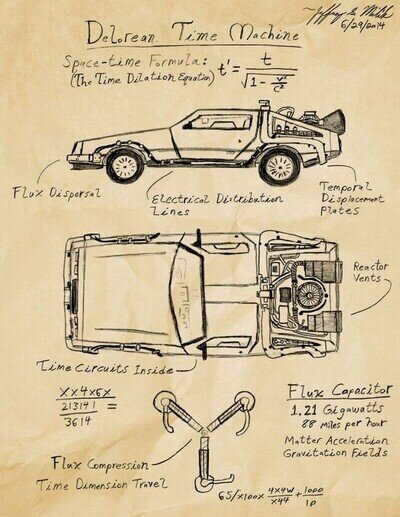 ~Jeffrey G. Malik
6/29/2014
DeLorean Time Machine
Space-time Formula: t' = t / √1 - v²/c²
(The Time Dilation Equation)
Flux Dispersal
Electrical Distribution
Lines
Temporal
Displacement
Plates
Reactor
Vents
Time Circuits Inside
XX4x6X
213141 =
3614
Flux Capacitor
1.21 Gigawatts
88 Miles per hour
Matter Acceleration
Gravitation Fields
Flux Compression
Time Dimension Travel
65/x100x 4x4W/x44 + 1000/10